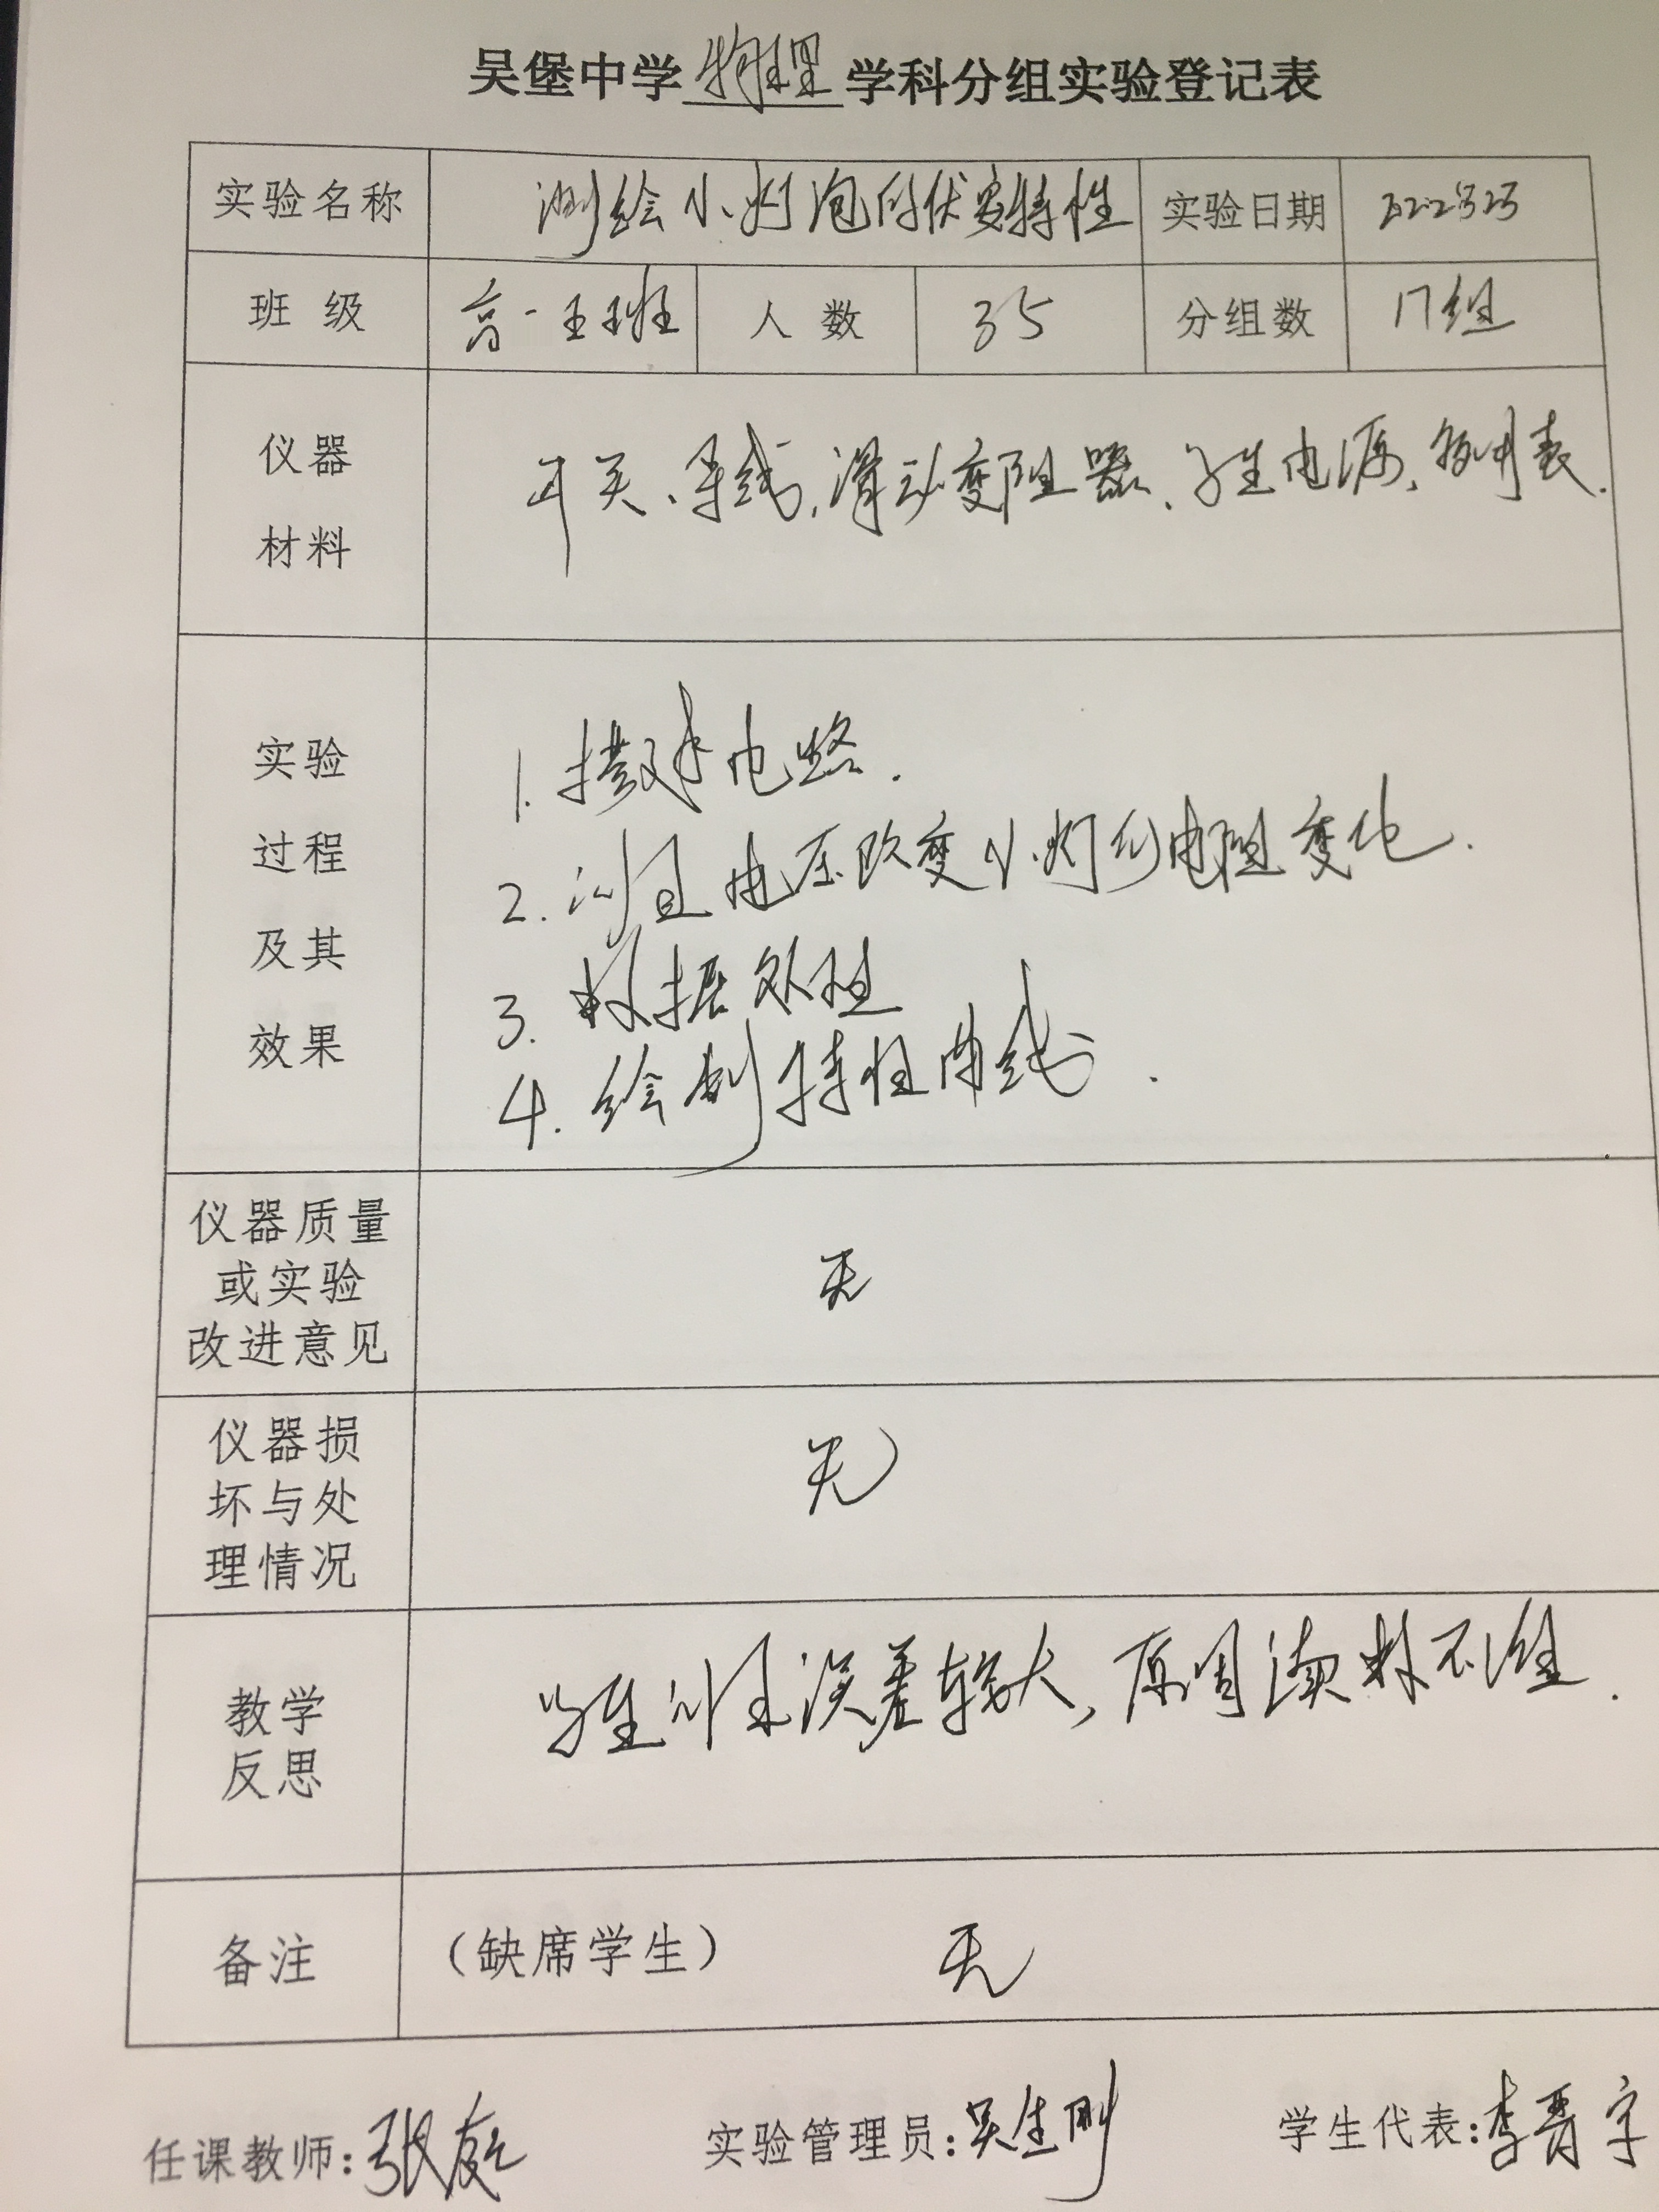 吴堡中学物理学科分组实验登记表
实验名称 测绘小灯泡的伏安特性 实验日期
班 级 高一五班 人 数 35 分组数 17组
仪器
材料
开关、导线,滑动变阻器、学生电源,多用表.
实验
过程
及其
效果
1. 搭建电路.
2. 测量电压改变小灯的电阻变化.
3. 数据处理
4. 绘制特性曲线.
仪器质量
或实验
改进意见
无
仪器损
坏与处
理情况
无
教学
反思
学生测量误差较大,原因读数不准.
备注 (缺席学生) 无
任课教师: 实验管理员:吴生刚 学生代表:李晋宇